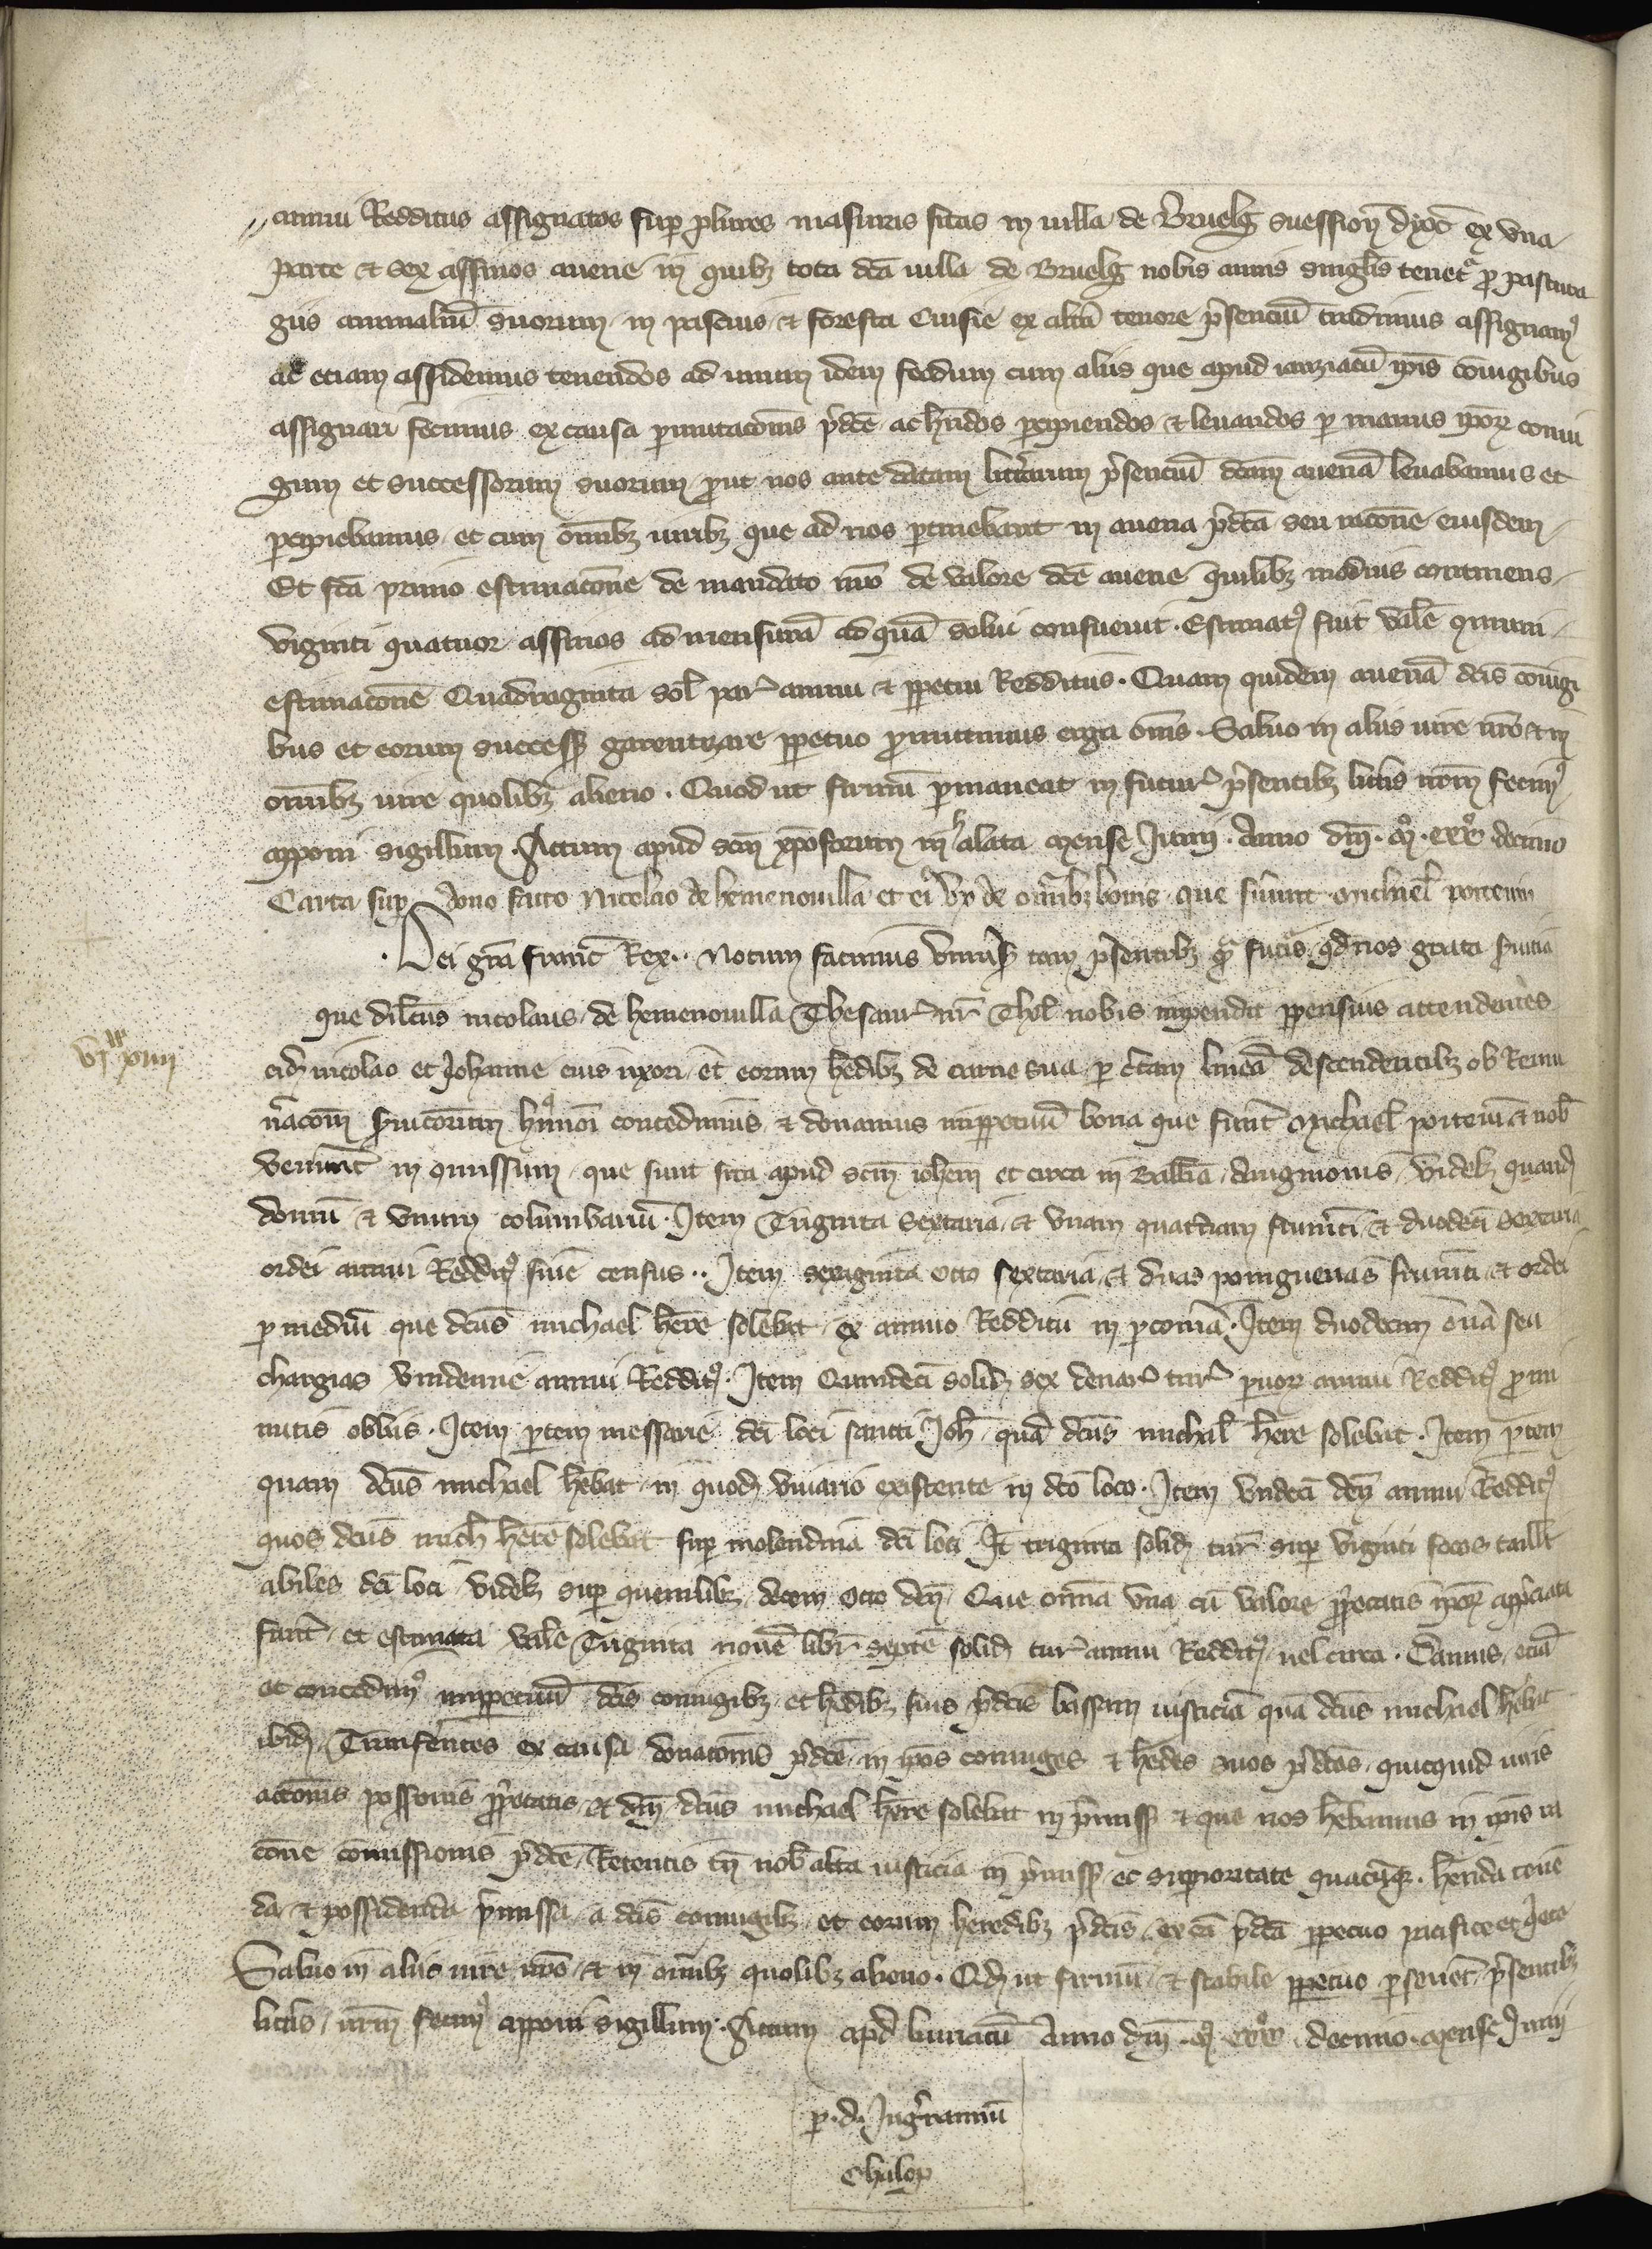 annui Redditus assignatos sup plures masuris sitas in uilla de Bruelg suession dyoc ex vna
parte et sex assinos auene in quibz tota dca uilla de Bruelg nobis annis singlis tenet pro pastura
giis animaliu suorum in pascuis et foresta Cuisie ex altа tenore psenciu tradimus assignam9
ac eciam assidemus tenendos ad unum idem feodum cum aliis que apud ianziacu ipis coniugibus
assignari fecimus ex causa pmutaconis pdce ac hndos pcipiendos et leuandos p manus ipor coniu
gum et successorum suorum prout nos ante datam litterarum psenciu dcam auena leuabamus et
pcipiebamus et cum omibz iuribz que ad nos ptinebant in auena pdca seu racone eiusdem
Et fca primo estimacone de mandato nro de valore dce auene quilibz modius continens
viginti quatuor assinos ad mensura ad qua solui consueuit. Estimat9 fuit vale comuni
estimacone Quadraginta sol par annui et ppetui Redditus. Quam quidem auena dcis coniugi
bus et eorum success garentizare ppetuo promittimus erga oms. Saluo in aliis iure nro et in
omibz iure quolibz alieno. Quod ut firmu pmaneat in futur psentibz litteris nrm fecim9
apponi sigillum. Actum apud scm xpoforum in halata mense Junii. Anno dni. mo. ccco. decimo
Carta sup dono facto Nicolao de hemenouilla et ei vx de omibz bonis que fuerunt michael portenin
. Dei gra franc Rex.. Notum facimus vniuss tam psentibz qua futis qd nos grata seruicia
que dilcus nicolaus de hemenouilla Thesaur nr Thol nobis impendit ppensius attendentes
eidem nicolao et Johanne eius uxori et eorum hedibz de carne sua p rectam linea descendentibz ob Remu
neracom seruicorum hmoi concedimus et donamus inppetuu bona que fuert michael portenin et nob
venerunt in comissum que sunt sita apud scm iohem et circa in Balliua auignonis videlz quand
domu et vnum columbariu. Item Triginta sextaria et vnam quartam frumti et duodeci sextaria
ordei annui Reddit9 siue census.. Item sexaginta octo sextaria et duas poingnerias frumti et ordei
p mediu que dcus michael here solebat ex annuo Redditu in pcoma. Item duodecim ona seu
chargias vindemie annui Reddit9. Item Quindeci solid sex denar tur puor annui Reddit9 pro mi
nutis obliis. Item ptem messarie dci loci sancti Joh qua dcus michael here solebat. Item ptem
quam dcus michael hebat in quod viuario existente in dco loco. Item vndeci den annui Reddit9
quos dcus mich here solebat sup molendina dci loci It triginta solid tur sup viginti focos taill
abiles dci loci videlz sup quemlibz decem octo den. Que omia vna cu valore ppetatis ipor appciata
fuert et estimata vale Triginta noue libr septe solid tur annui Reddit9 uel circa. Damus ecia
et concedim9 inppetuu dcis coniugibz et hedibz suis pdcis bassam iusticia qua dcus michael hebat
ibid. Transferentes ex causa donaconis pdce in ipos coniuges et hedes suos pdcos quicquid iuris
acconis possionis ppetatis et dni dcus michael here solebat in pmiss et que nos hebamus in ipis ra
cone comissionis pdce. Retentis tn nob alta iusticia in pmiss ac superioritate quacuq. henda tene
da et possidenda pmissa a dcis coniugibz et eorum heredibz pdcis ex ca pdca ppetuo pacifice et quiete
Saluo in aliis iure nro et in omibz quolibz alieno. Qd ut firmu et stabile ppetuo pseuet psentibz
litteris nrm fecim9 apponi sigillum. Actum apd liuriacu Anno dni. mo. ccco. decimo mense Junii
p. d. Jngerrannu
Chalop